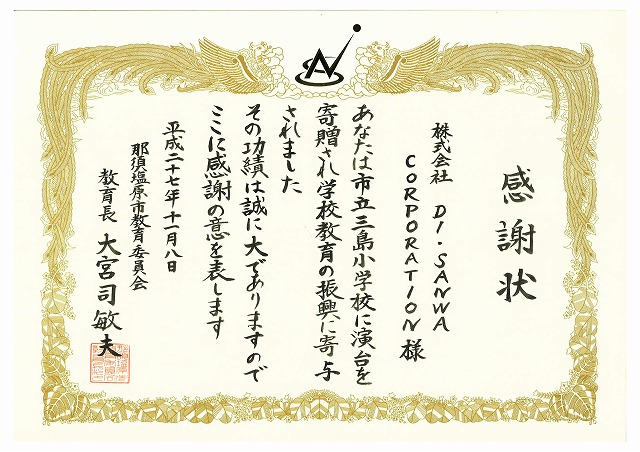 感謝状
株式会社 DI・SANWA
CORPORATION 様
あなたは市立三島小学校に演台を
寄贈され学校教育の振興に寄与
されました
その功績は誠に大でありますので
ここに感謝の意を表します
平成二十七年十一月八日
那須塩原市教育委員会
教育長 大宮司敏夫